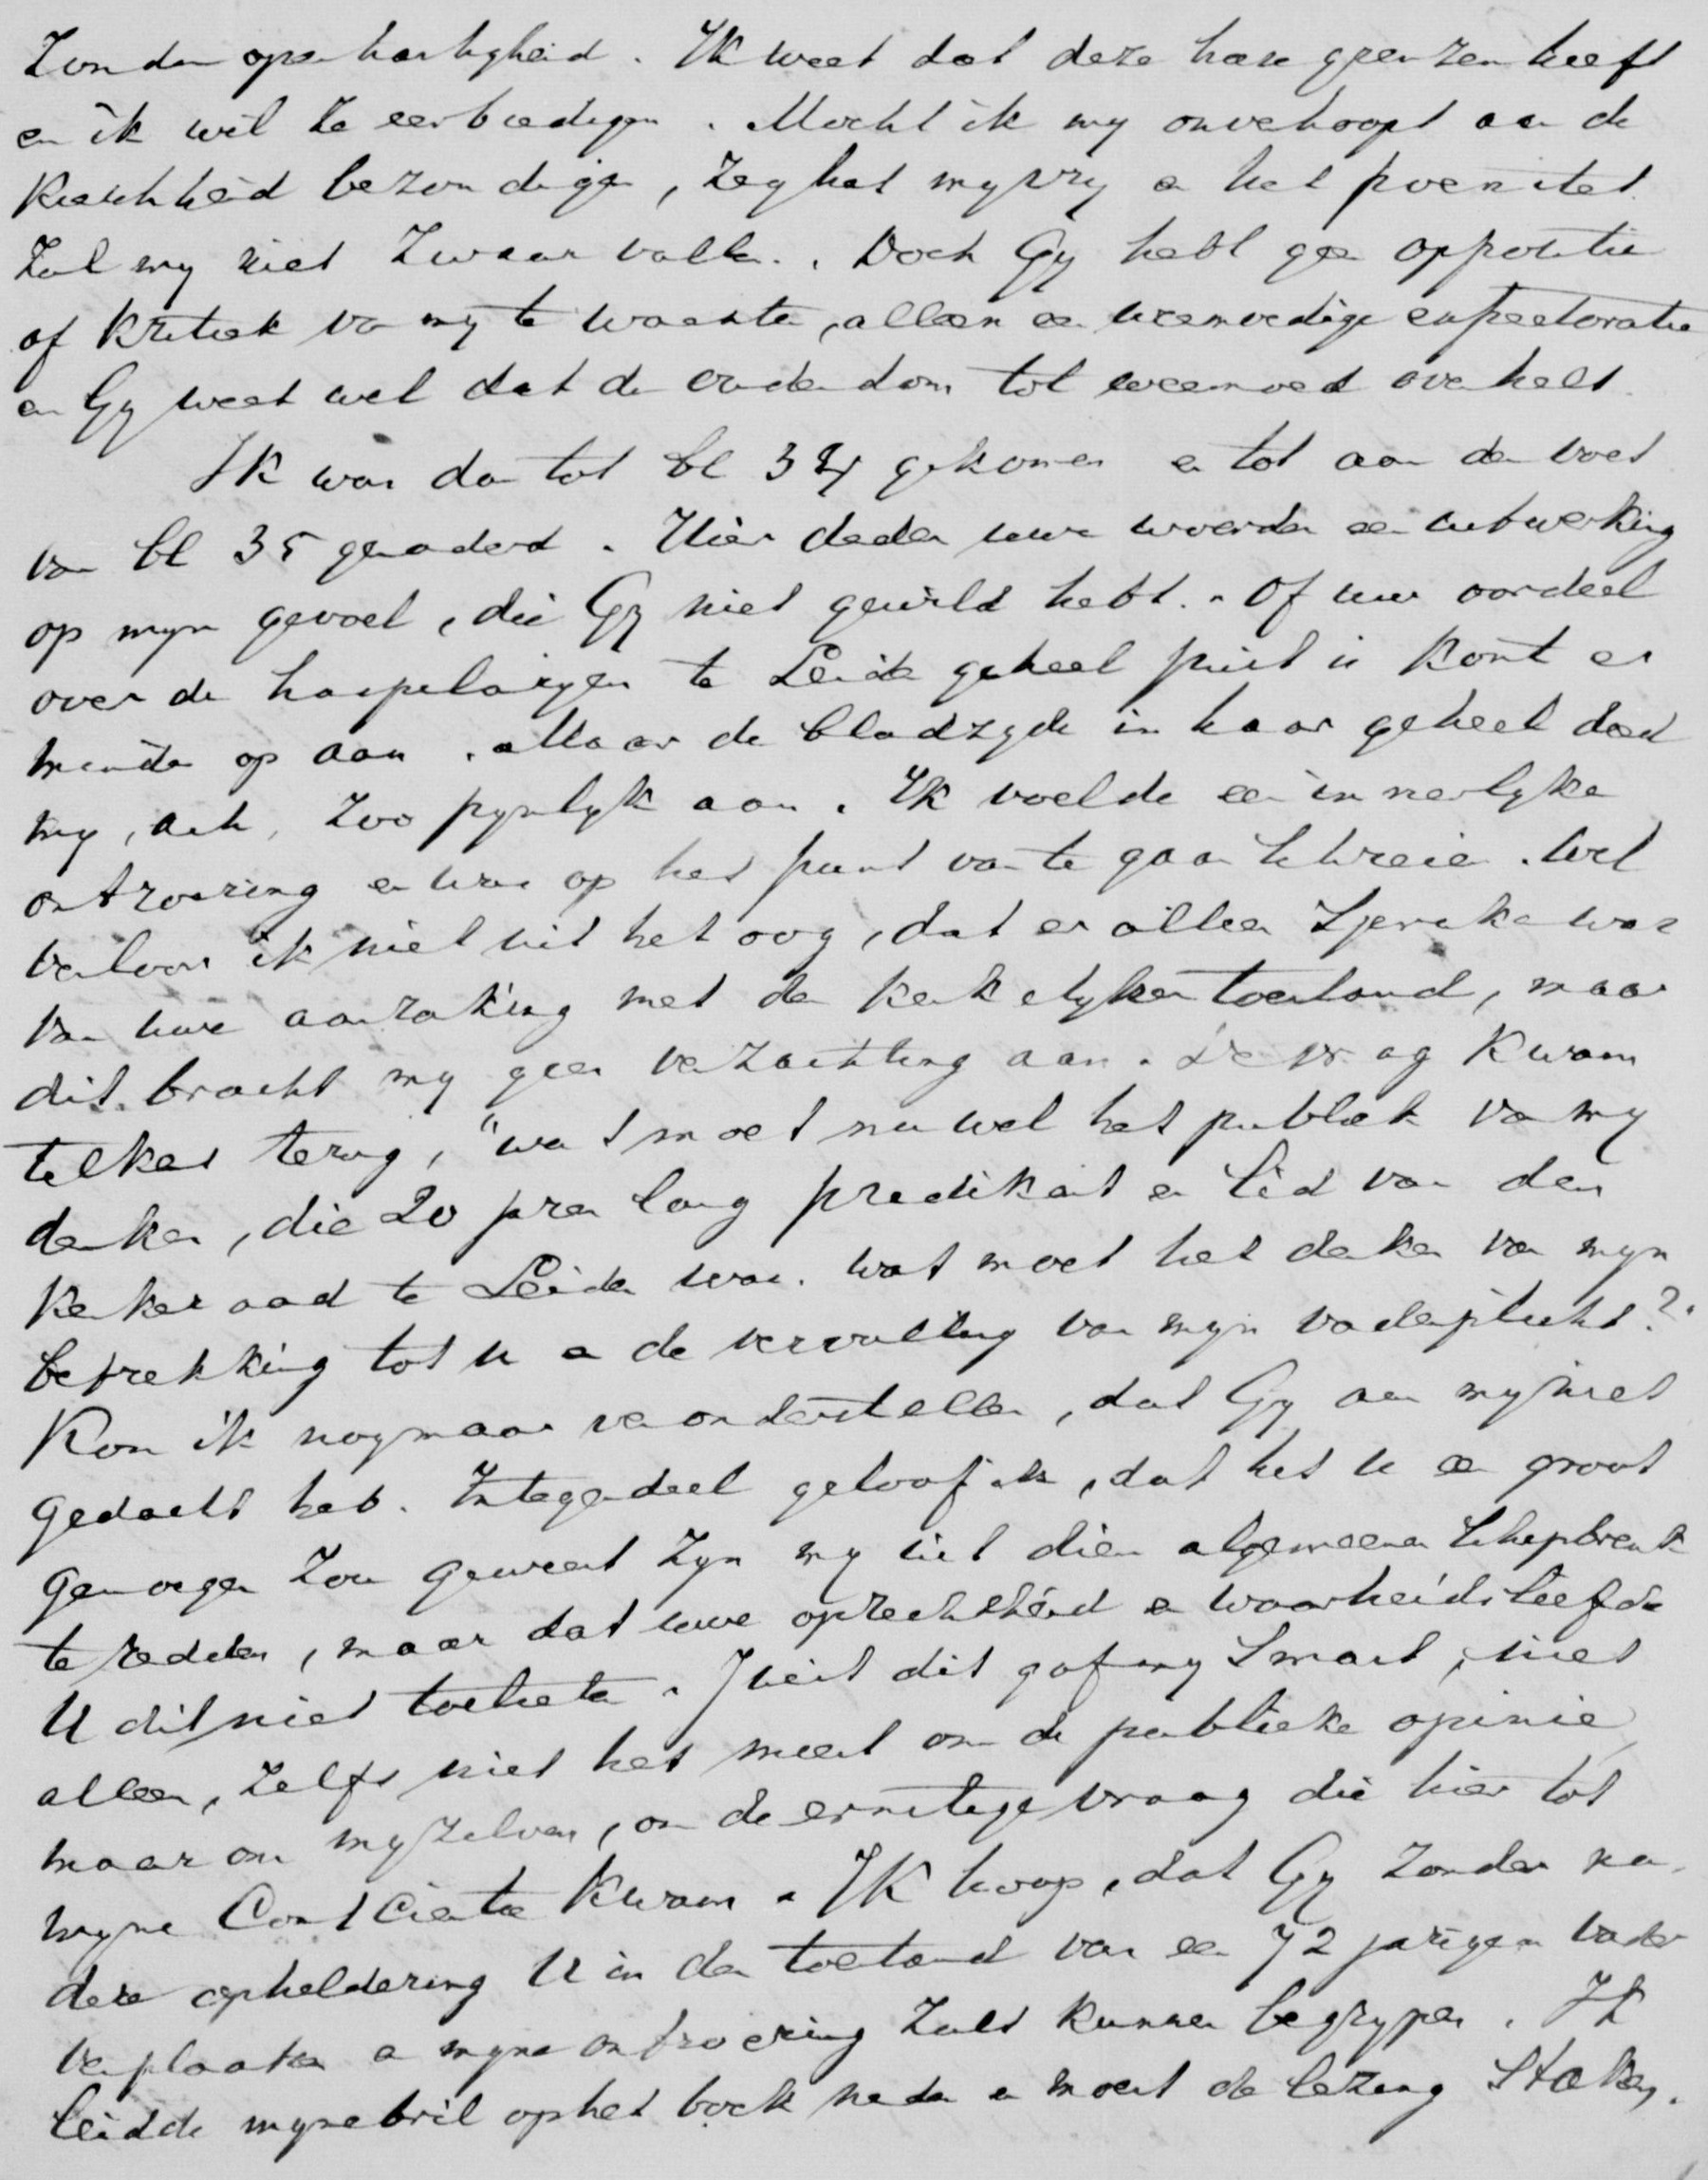 Zonder openhartigheid. Ik weet dat deze hare grenzen heeft
en ik wil ze eerbiedigen. Mocht ik my onverhoopt aan de
Kieschheid bezondigen, zeg het my vry en het poenitet
zal my niet zwaar vallen. Doch Gy hebt geen oppositie
of Kritiek van my te wachten, alleen een weemoedige expectoratie
en Gy weet wel dat de ouderdom tot weemoed overhelt.
Ik was dan tot bl 34 gekomen en tot aan den voet
van bl 35 genaderd. Hier deden uwe woorden een uitwerking
op myn gevoel, die Gy niet gewild hebt. Of uw oordeel
over de haspelaryen te Leide geheel juist is komt er
minder op aan. Maar de bladzyde in haar geheel deed
my, ach, zoo pynlyk aan. Ik voelde een innerlyke
ontroering en was op het punt van te gaan schreien. Wel
verloor ik niet uit het oog, dat er alleen sprake was
van uwe aanraking met den kerkelyken toestand, maar
dit bracht my geen verzachting aan. De vraag kwam
telkens terug, "wat moet nu wel het publiek van my
denken, die 20 jaren lang predikant en lid van den
Kerkeraad te Leiden was. Wat moet het denken van myn
betrekking tot u en de vervulling van myn vaderplicht?.
Kon ik nog maar veronderstellen, dat Gy aan my niet
gedacht heb. Integendeel geloof ik, dat het u een groot
genoegen zou geweest zyn my uit dien algemeenen schipbreuk
te redden, maar dat uwe oprechtheid en waarheidsliefde
U dit niet toelieten. Juist dit gaf my smart, niet
alleen, zelfs niet het meest om de publieke opinie,
maar om myzelven, om de ernstige vraag die hier tot
myne Conscientie kwam. Ik hoop, dat Gy zonder na-
dere opheldering U in den toestand van een 72 jarigen vader
verplaatsen en myne ontroering zult kunnen begrypen. Ik
leidde myne bril op het boek neder en moest de lezing staken.